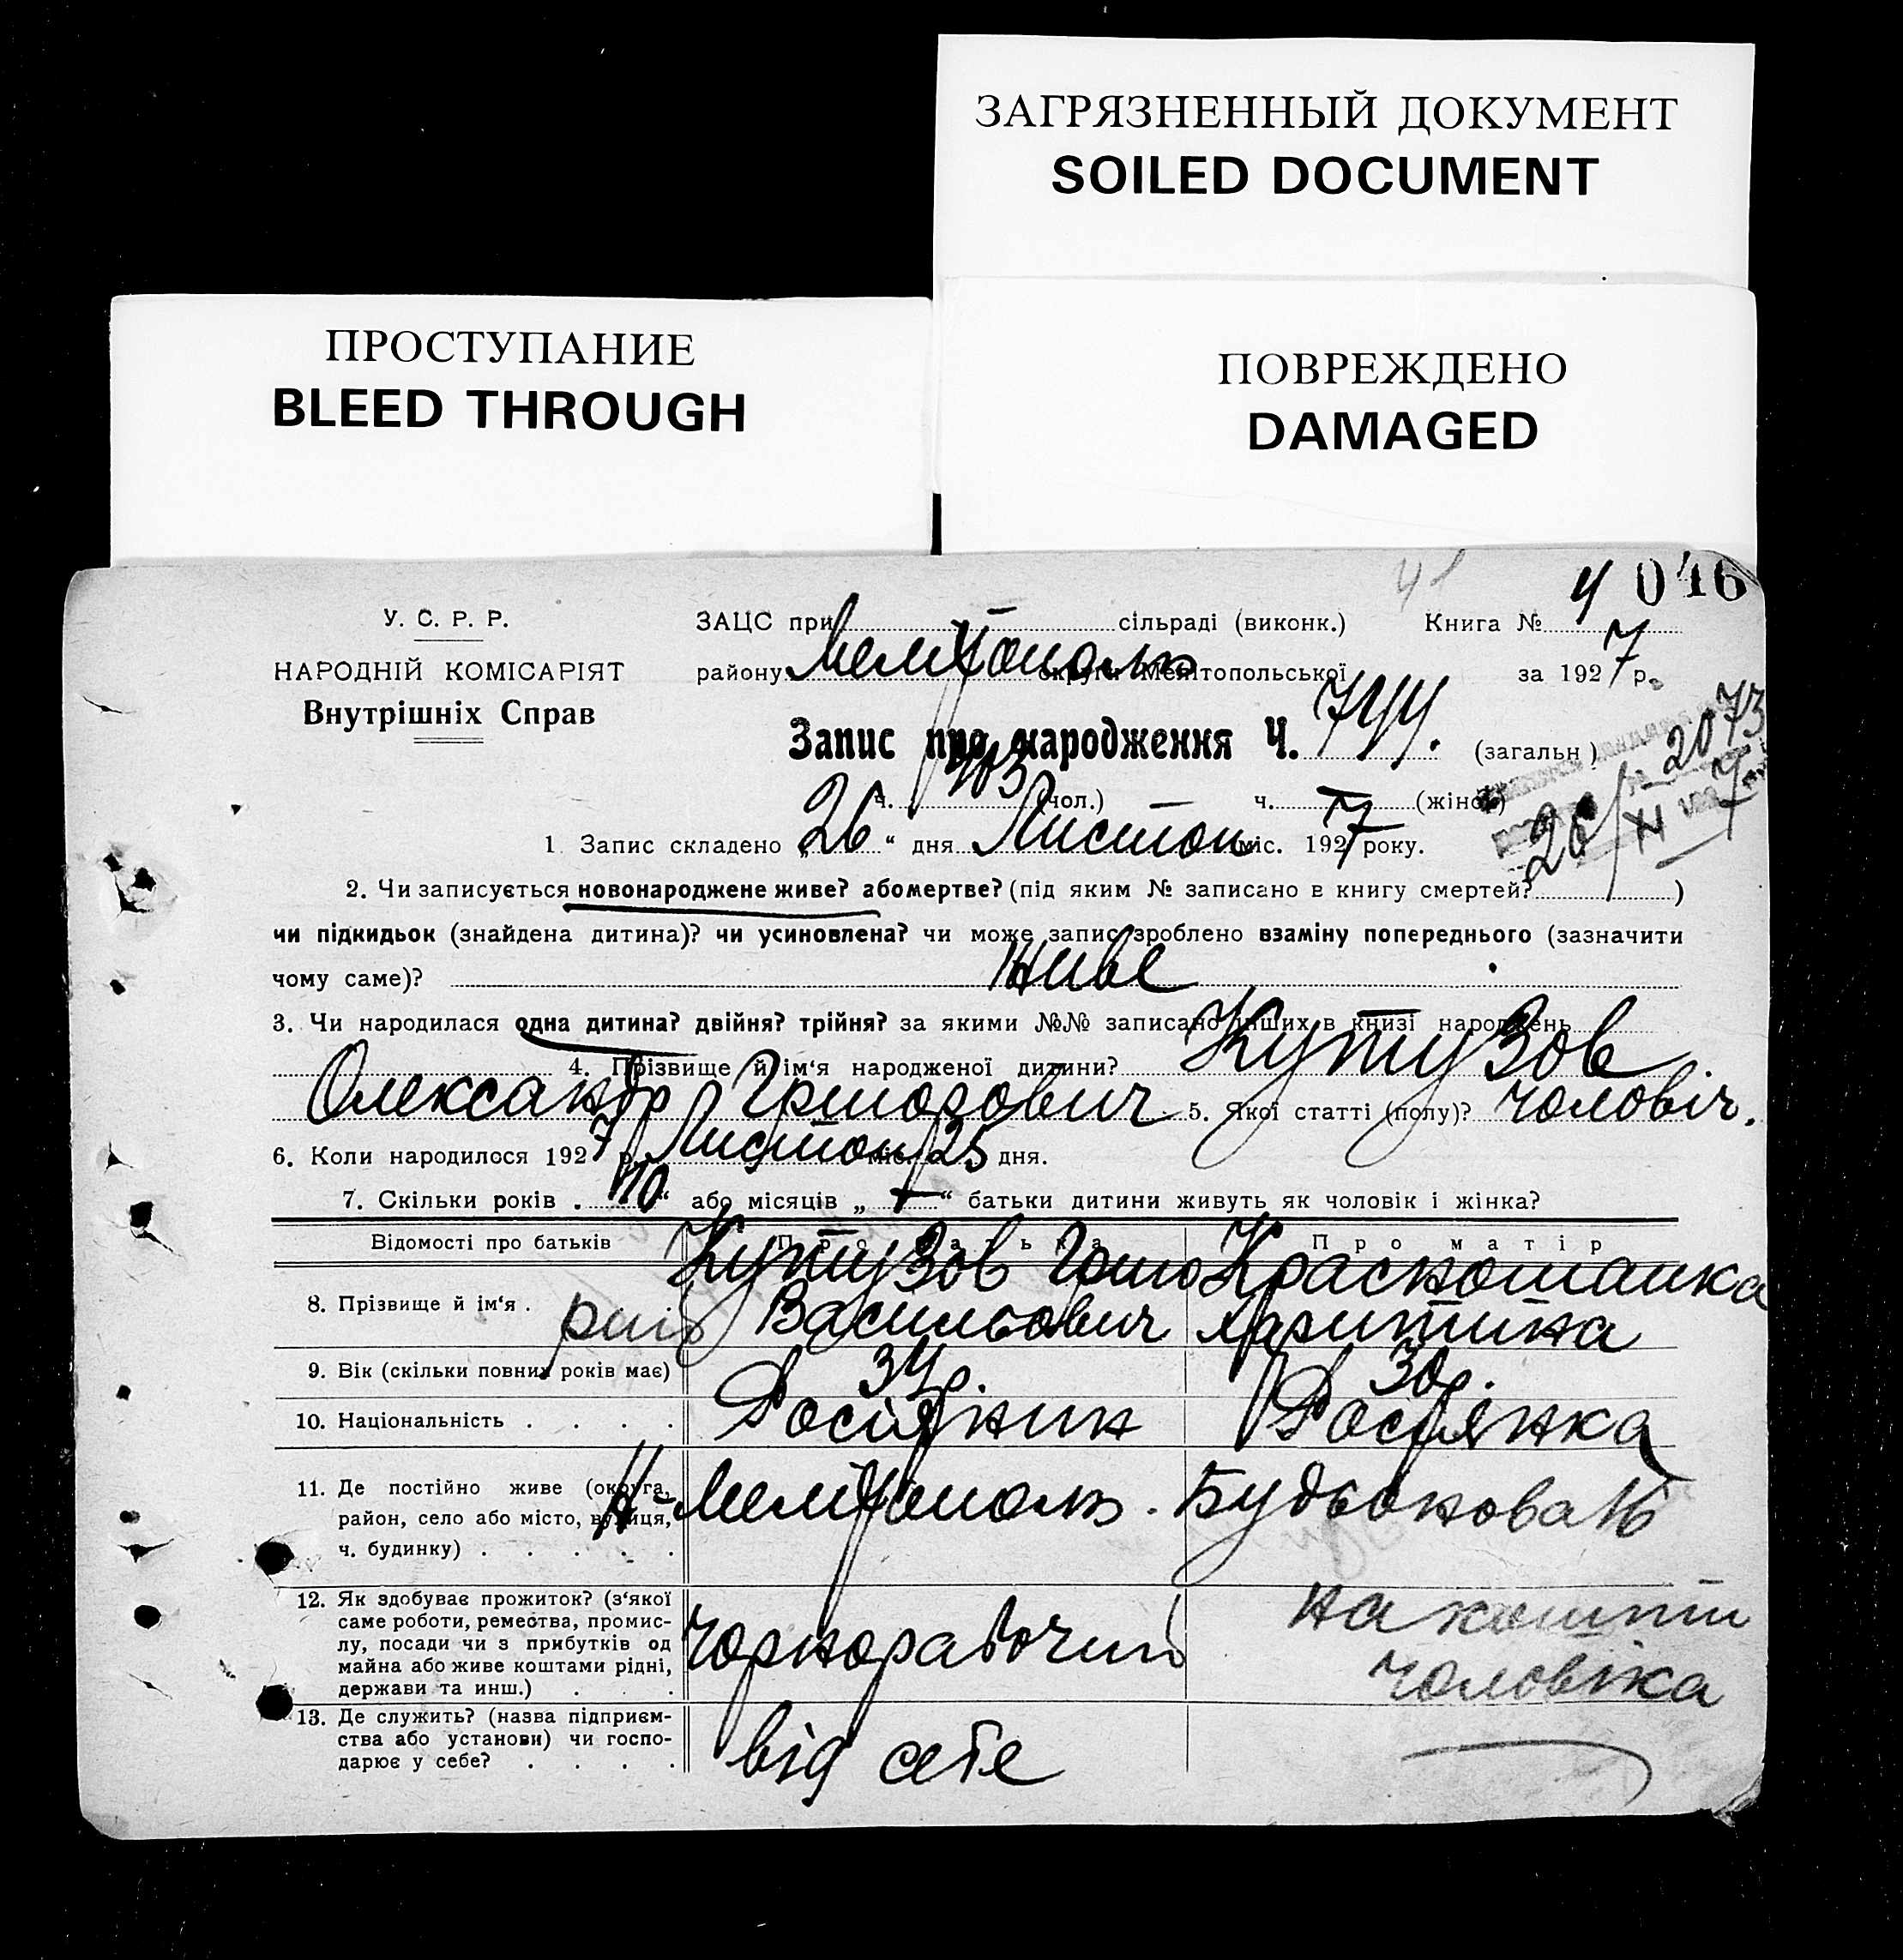 ЗАГРЯЗНЕННЫЙ ДОКУМЕНТ
SOILED DOCUMENT
ПРОСТУПАНИЕ
BLEED THROUGH
ПОВРЕЖДЕНО
DAMAGED
41
4 046
У. С. Р. Р.
НАРОДНІЙ КОМІСАРІЯТ
Внутрішніх Справ
ЗАЦС при сільраді (виконк.) Книга №
району Мелітополь округи Мелітопольської за 1927 р.
Запис про народження Ч. 744. (загальн)
2073
ч. 403 (чол.) ч. — (жіноч)
26/XI 7
1. Запис складено „26“ дня Листоп міс. 1927 року.
2. Чи записується новонароджене живе? або мертве? (під яким № записано в книгу смертей? )
чи підкидьок (знайдена дитина)? чи усиновлена? чи може запис зроблено взаміну попереднього (зазначити
чому саме)? Живе
3. Чи народилася одна дитина? двійня? трійня? за якими №№ записано інших в книзі народжень
4. Прізвище й ім'я народженої дитини? Кутузов
Олександр Григорович 5. Якої статті (полу)? чоловіч.
6. Коли народилося 1927 р. Листоп міс. 25 дня.
7. Скільки років „10“ або місяців „—“ батьки дитини живуть як чоловік і жінка?
Відомості про батьків Про батька Про матір
8. Прізвище й ім'я . Кутузов Григо Краснощапка
рий Васильович Харитина
9. Вік (скільки повних років має) 34 р. 30 р.
10. Національність . . . . Росіянин Росіянка
11. Де постійно живе (округа,
район, село або місто, вулиця,
ч. будинку) . . . . .
Мелітополь. Будьонова 16
12. Як здобуває прожиток? (з'якої
саме роботи, ремества, промис-
лу, посади чи з прибутків од
майна або живе коштами рідні,
держави та инш.) . . .
чорнорабочий
на кошти
чоловіка
13. Де служить? (назва підприєм-
ства або установи) чи госпо-
дарює у себе? . . . .
від себе